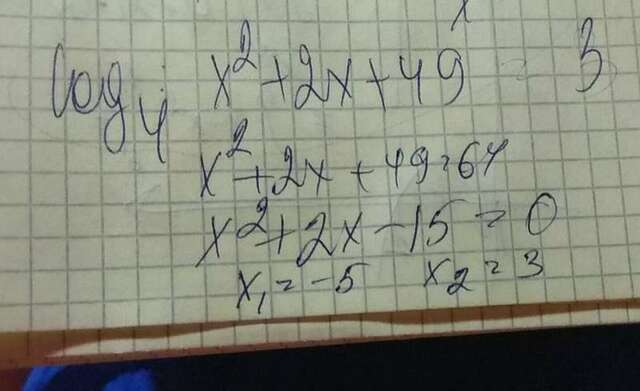 log₄ x² + 2x + 49 = 3
x² + 2x + 49 = 64
x² + 2x - 15 = 0
x₁ = -5 x₂ = 3